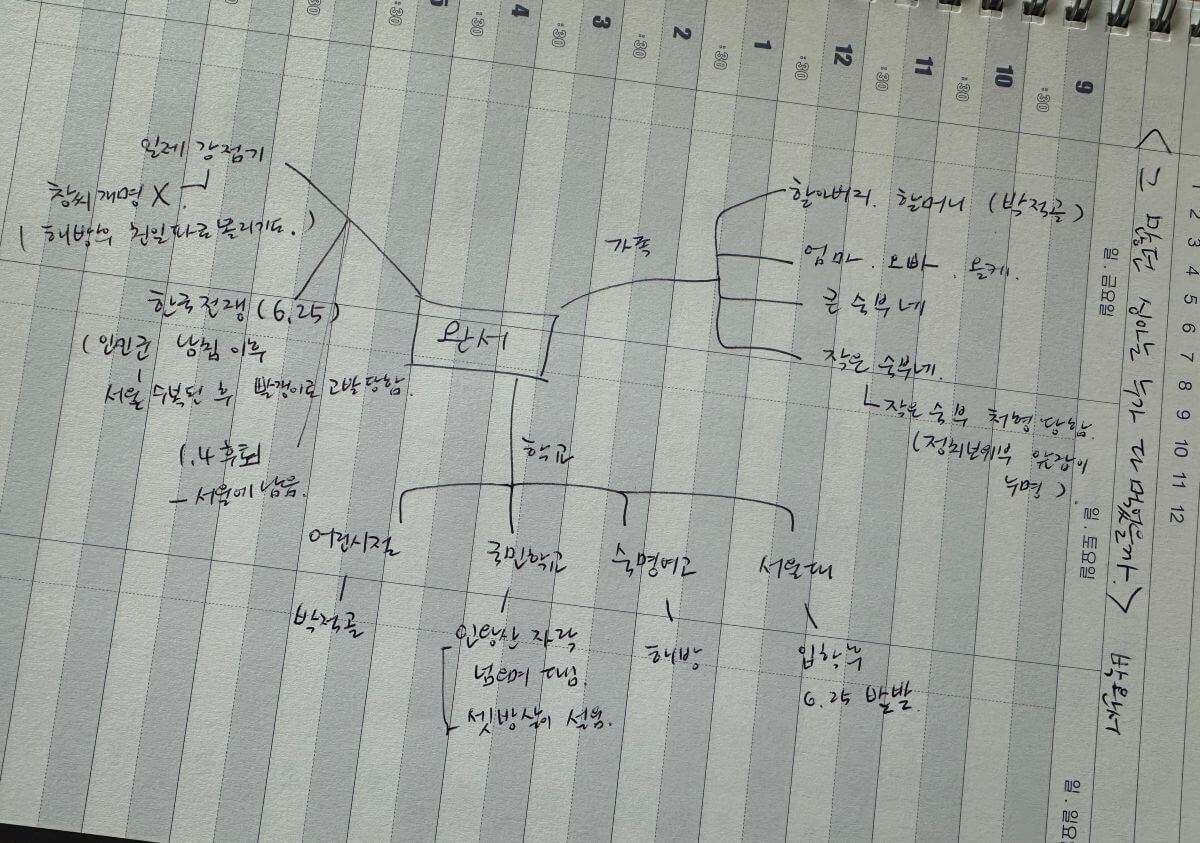 <그 많던 싱아는 누가 다 먹었을까.> 박완서
1 2 3 4 5 6 7 8 9 10 11 12
일. 금요일
일. 토요일
일. 일요일
9
:30
10
:30
11
:30
12
:30
1
:30
2
:30
3
:30
4
:30
5
:30
:30
완서
가족
할아버지. 할머니 (박적골)
엄마. 오빠. 올케.
큰 숙부네
작은 숙부네.
작은 숙부 처형 당함.
(정치보위부 앞잡이
누명)
일제 강점기
창씨개명 X.
(해방후 친일파로 몰리기도.)
한국전쟁 (6.25)
(인민군 남침 이후
서울 수복된 후 빨갱이로 고발당함.
1.4 후퇴
- 서울에 남음.
학교
어린시절
박적골
국민학교
인왕산 자락
넘으며 다님.
셋방살이 설움.
숙명여고
해방
서울대
입학후
6.25 발발